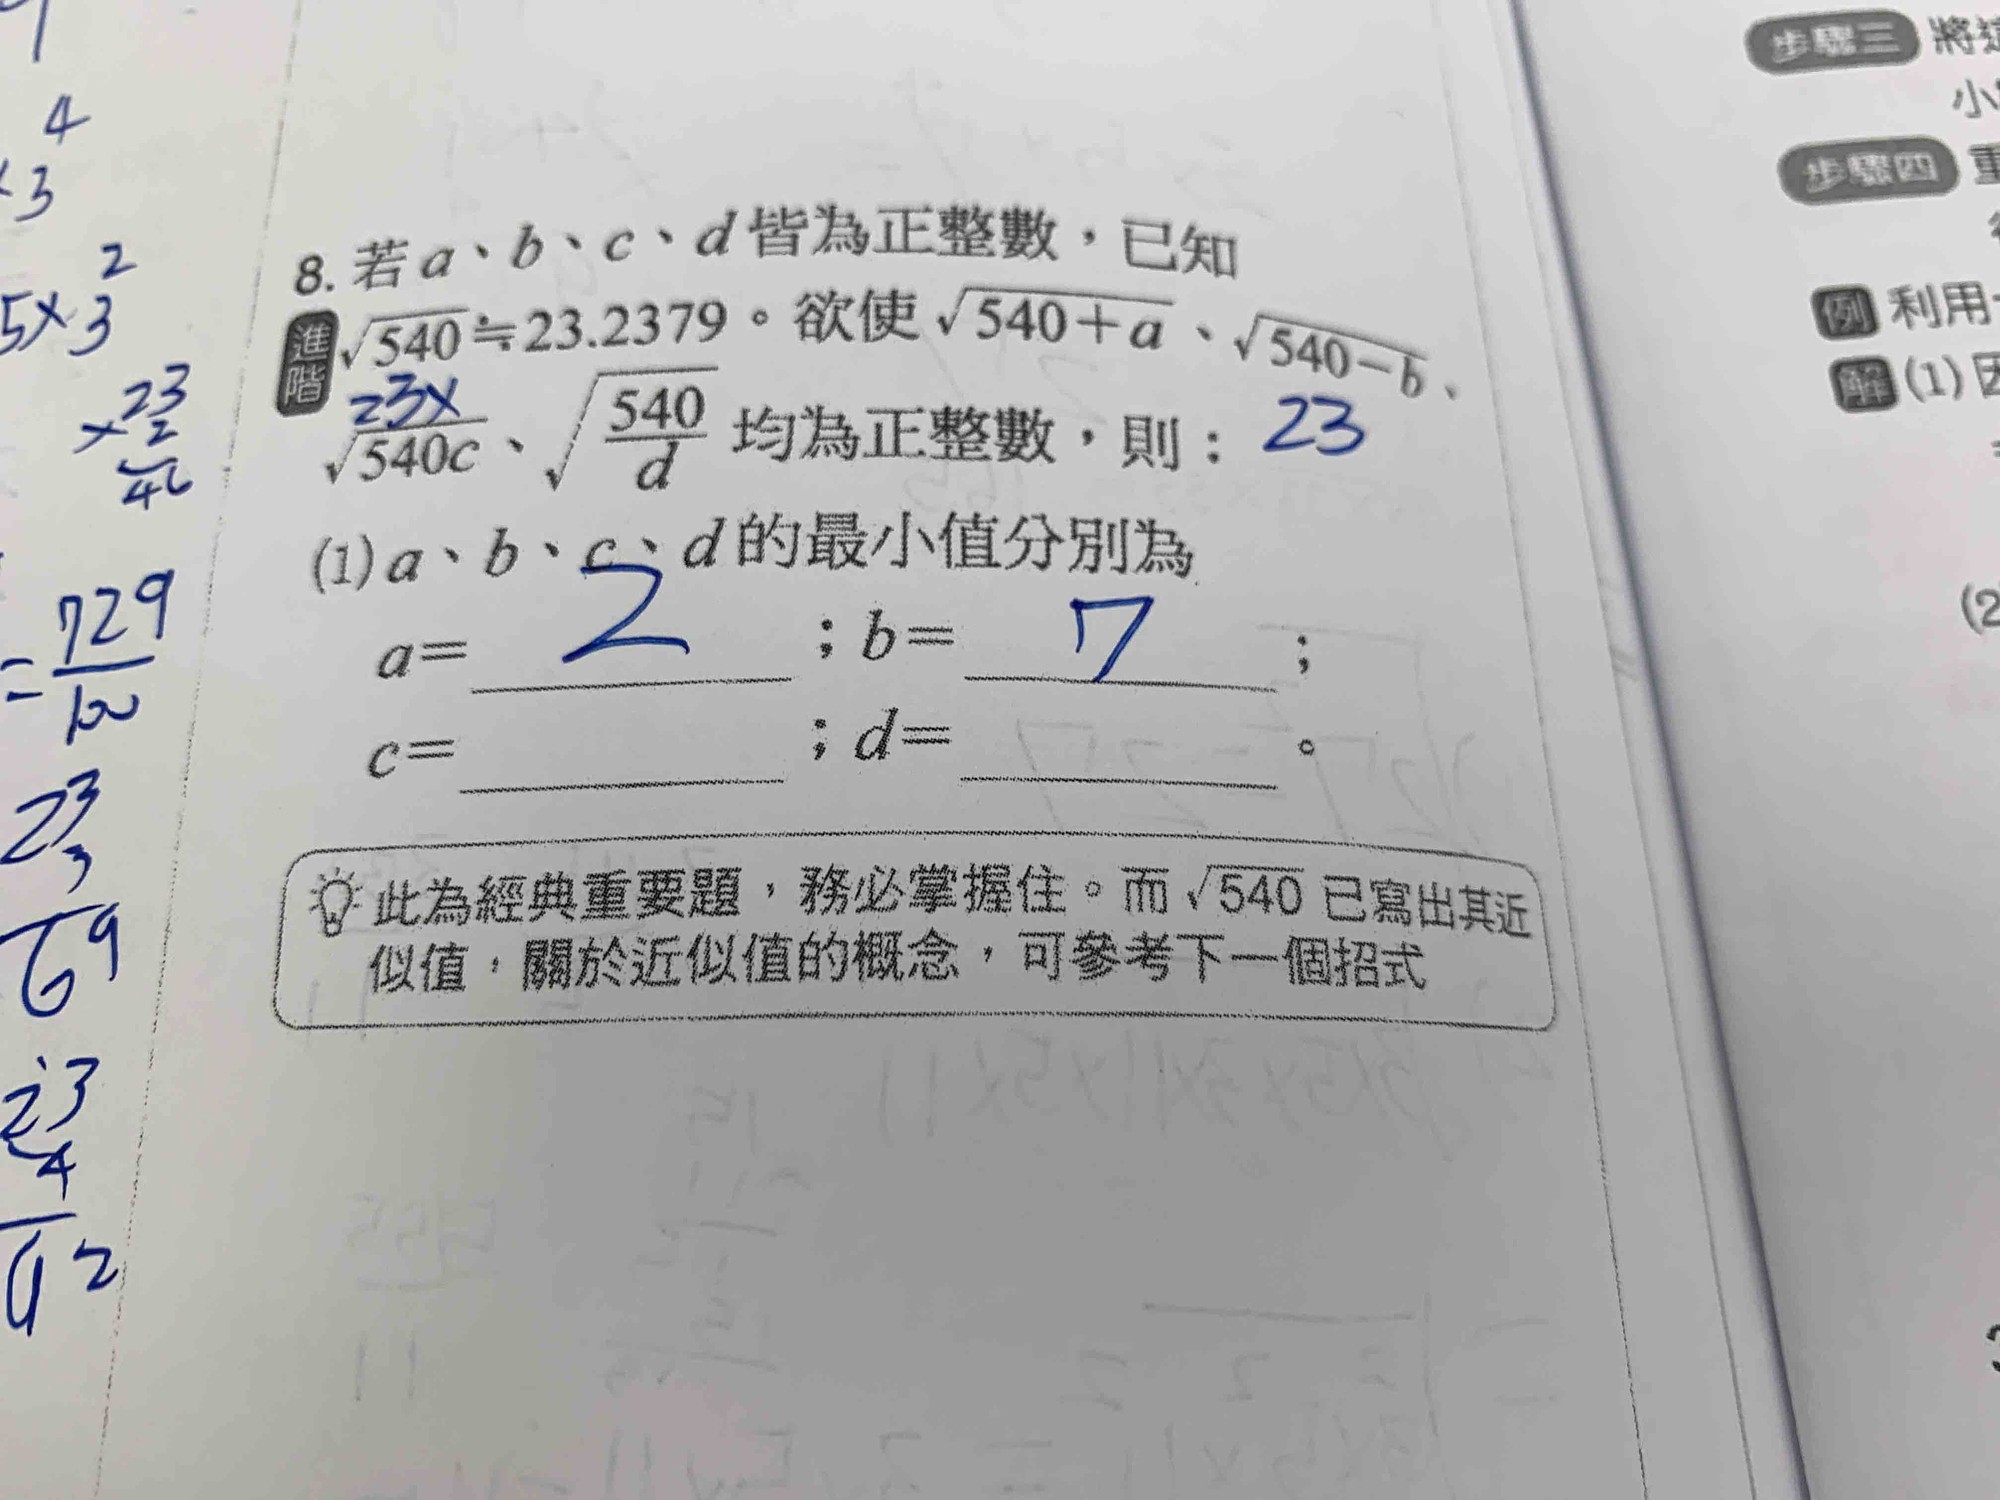 4
×3
2
5×3
23
×2
46
=729
100
23
3
69
23
4
92
8. 若a、b、c、d皆為正整數，已知
進階 √540≒23.2379。欲使√540+a、√540-b、
23×
√540c、√540/d 均為正整數，則： 23
(1) a、b、c、d的最小值分別為
a= 2 ；b= 7 ；
c= ；d= 。
此為經典重要題，務必掌握住。而√540已寫出其近
似值，關於近似值的概念，可參考下一個招式
步驟三 將這
小
步驟四 重
例 利用
解 (1) 因
(2